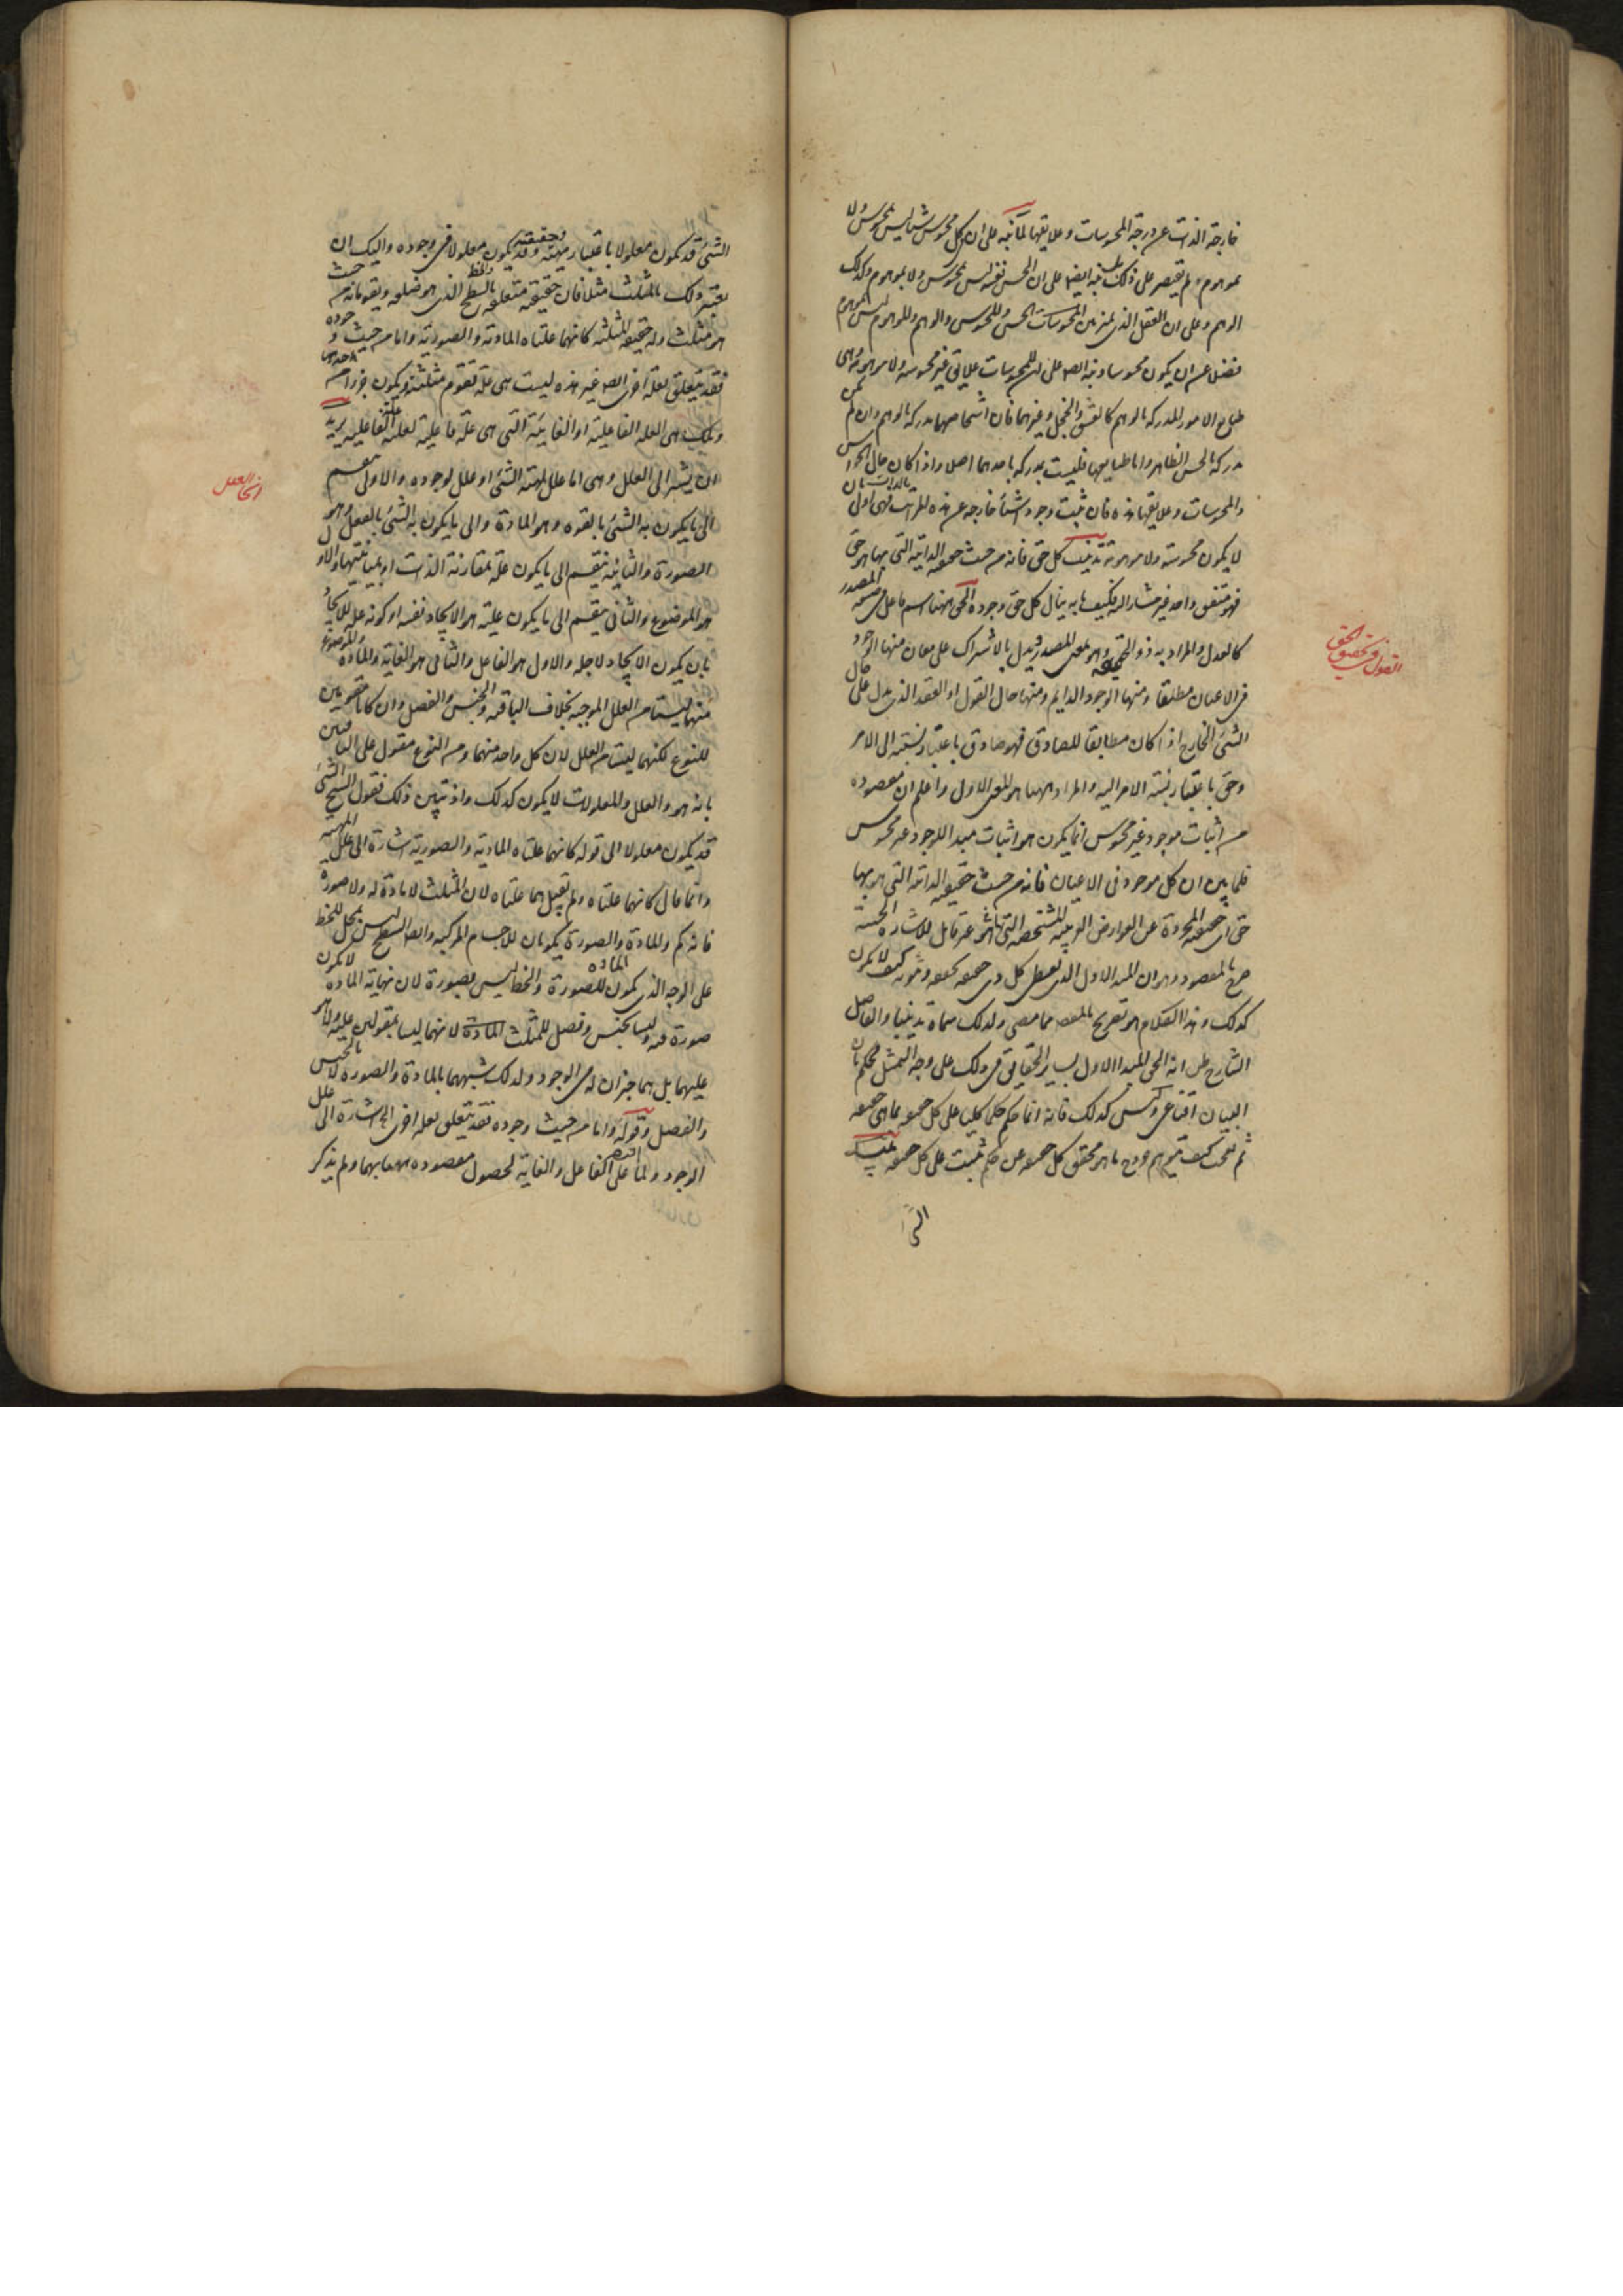 خارجة الذات عن درجة المحسوسات وعلايقها لما نبه على ان كل محسوس شيا ليس بمحسوس ولا
بموهوم لم يقتصر على ذلك بل نبه ايضا على ان الحس نفسه ليس بمحسوس ولا بموهوم وكذلك
الوهم وعلى ان العقل الذى يميز بين المحسوسات والحس والمحسوس والوهم والموهوم ليس بموهوم
فضلا عن ان يكون محسوسا ونبه ايضا على ان للمحسوسات علايق غير محسوسة ولا موهومة وهى
طبايع الامور المدركة بالوهم كالعشق والخجل وغيرهما فان اشخاصها مدركة بالوهم وان لم تكن
مدركة بالحس الظاهر واما طبايعها فليست بمدركة باحدهما اصلا واذا كان حال الحواس
والمحسوسات وعلايقها هذه فان ثبت وجود اشياء خارجة عن هذه المراتب بالذات فهى اولى بان
لا يكون محسوسة ولا موهومة تذنيب كل حق فانه من حيث حقيقته الذاتية التى بها هو حق
فهو متفق واحد غير مشار اليه فكيف ما به ينال كل حق وجوده الحق ههنا اسم فاعل فى صيغة المصدر
كالعدل والمراد به ذو الحقيقة وهو بمعنى المصدر ويدل بالاشتراك على معان منها الوجود
فى الاعيان مطلقا ومنها الوجود الدايم ومنها حال القول او العقد الذى يدل على حال
الشئ الخارج اذا كان مطابقا للصادق فهو صادق باعتبار نسبته الى الامر
وحق باعتبار نسبة الامر اليه والمراد ههنا هو المعنى الاول واعلم ان مقصوده
من اثبات موجود غير محسوس انما يكون هو اثبات مبدا للوجود غير محسوس
فلما بين ان كل موجود فى الاعيان فانه من حيث حقيقته الذاتية التى هو بها
حق اى حقيقته المجردة عن العوارض الغريبة المشخصة التى بها هو غير قابل للاشارة الحسية
صرح بالمقصود وهو ان المبدا الاول الذى يعطى كل ذى حقيقة حقيقته وثبوته كيف لا يكون
كذلك وهذا الكلام هو تصريح بالمقصود مما مضى ولذلك سماه تذنيبا والفاضل
الشارح ظن انه الحق المبدا الاول بساير الحقايق فى ذلك على وجه التمثيل فحكم بان
البيان اقناعى وليس كذلك فانه انما حكم حكما كليا على كل حقيقة بما هى حقيقة
ثم تعجب كيف توهم خروج ما هو محقق كل حقيقة عن حكم يثبت على كل حقيقة تنبيه
الشئ
القول فى تحقيق الحق
الشئ قد يكون معلولا باعتبار مهيته وحقيقته وقد يكون معلولا فى وجوده واليك ان
تعتبر ذلك بالمثلث مثلا فان حقيقته متعلقة بالسطح والخط الذى هو ضلعه ويقومانه من حيث
هو مثلث وله حقيقة المثلثية كانهما علتاه المادية والصورية واما من حيث وجوده
فقد يتعلق بعلة اخرى ايضا غير هذه ليست هى علة تقوم مثلثيته ويكون جزءا من حدها
وتلك هى العلة الفاعلية او الغائية التى هى علة فاعلية لعلية العلة الفاعلية يريد
ان يشير الى العلل وهى اما علل لمهية الشئ او علل لوجوده والاولى تنقسم
الى ما يكون به الشئ بالقوة وهو المادة والى ما يكون به الشئ بالفعل وهو
الصورة والثانية تنقسم الى ما يكون علة بمقارنة الذات او بمباينتها والاول
هو الموضوع والثانى ينقسم الى ما يكون عليته هو الايجاد نفسه او كونه علة للايجاد
بان يكون الايجاد لاجله والاول هو الفاعل والثانى هو الغاية والمادة والموضوع
منهما ليستا من العلل الموجبة بخلاف الباقية والجنس والفصل وان كانا مقومين
للنوع لكنهما ليستا من العلل لان كل واحد منهما ومن النوع مقول على الباقيين
بانه هو والعلل والمعلولات لا يكون كذلك واذ تبين ذلك فنقول الشيخ الشئ
قد يكون معلولا الى قوله كانهما علتاه المادية والصورية اشارة الى علل المهية
وانما قال كانهما علتاه ولم يقل هما علتاه لان المثلث لا مادة له ولا صورة
فانه كم والمادة والصورة يكونان للاجسام المركبة وايضا السطح ليس بمحل للخط
على الوجه الذى يكون المادة للصورة والخط ليس بصورة لان نهاية المادة لا يكون
صورة فيه وليسا بجنس وفصل للمثلث لانهما ليسا بمقولين عليه ولا هو
عليهما بل هما جزءان له فى الوجود ولذلك شبههما بالمادة والصورة لا بالجنس
والفصل وقوله واما من حيث وجوده فقد يتعلق بعلة اخرى اشارة الى علل
الوجود وانما اقتصر على الفاعل والغاية لحصول مقصوده ههنا بهما ولم يذكر
انحا العلل